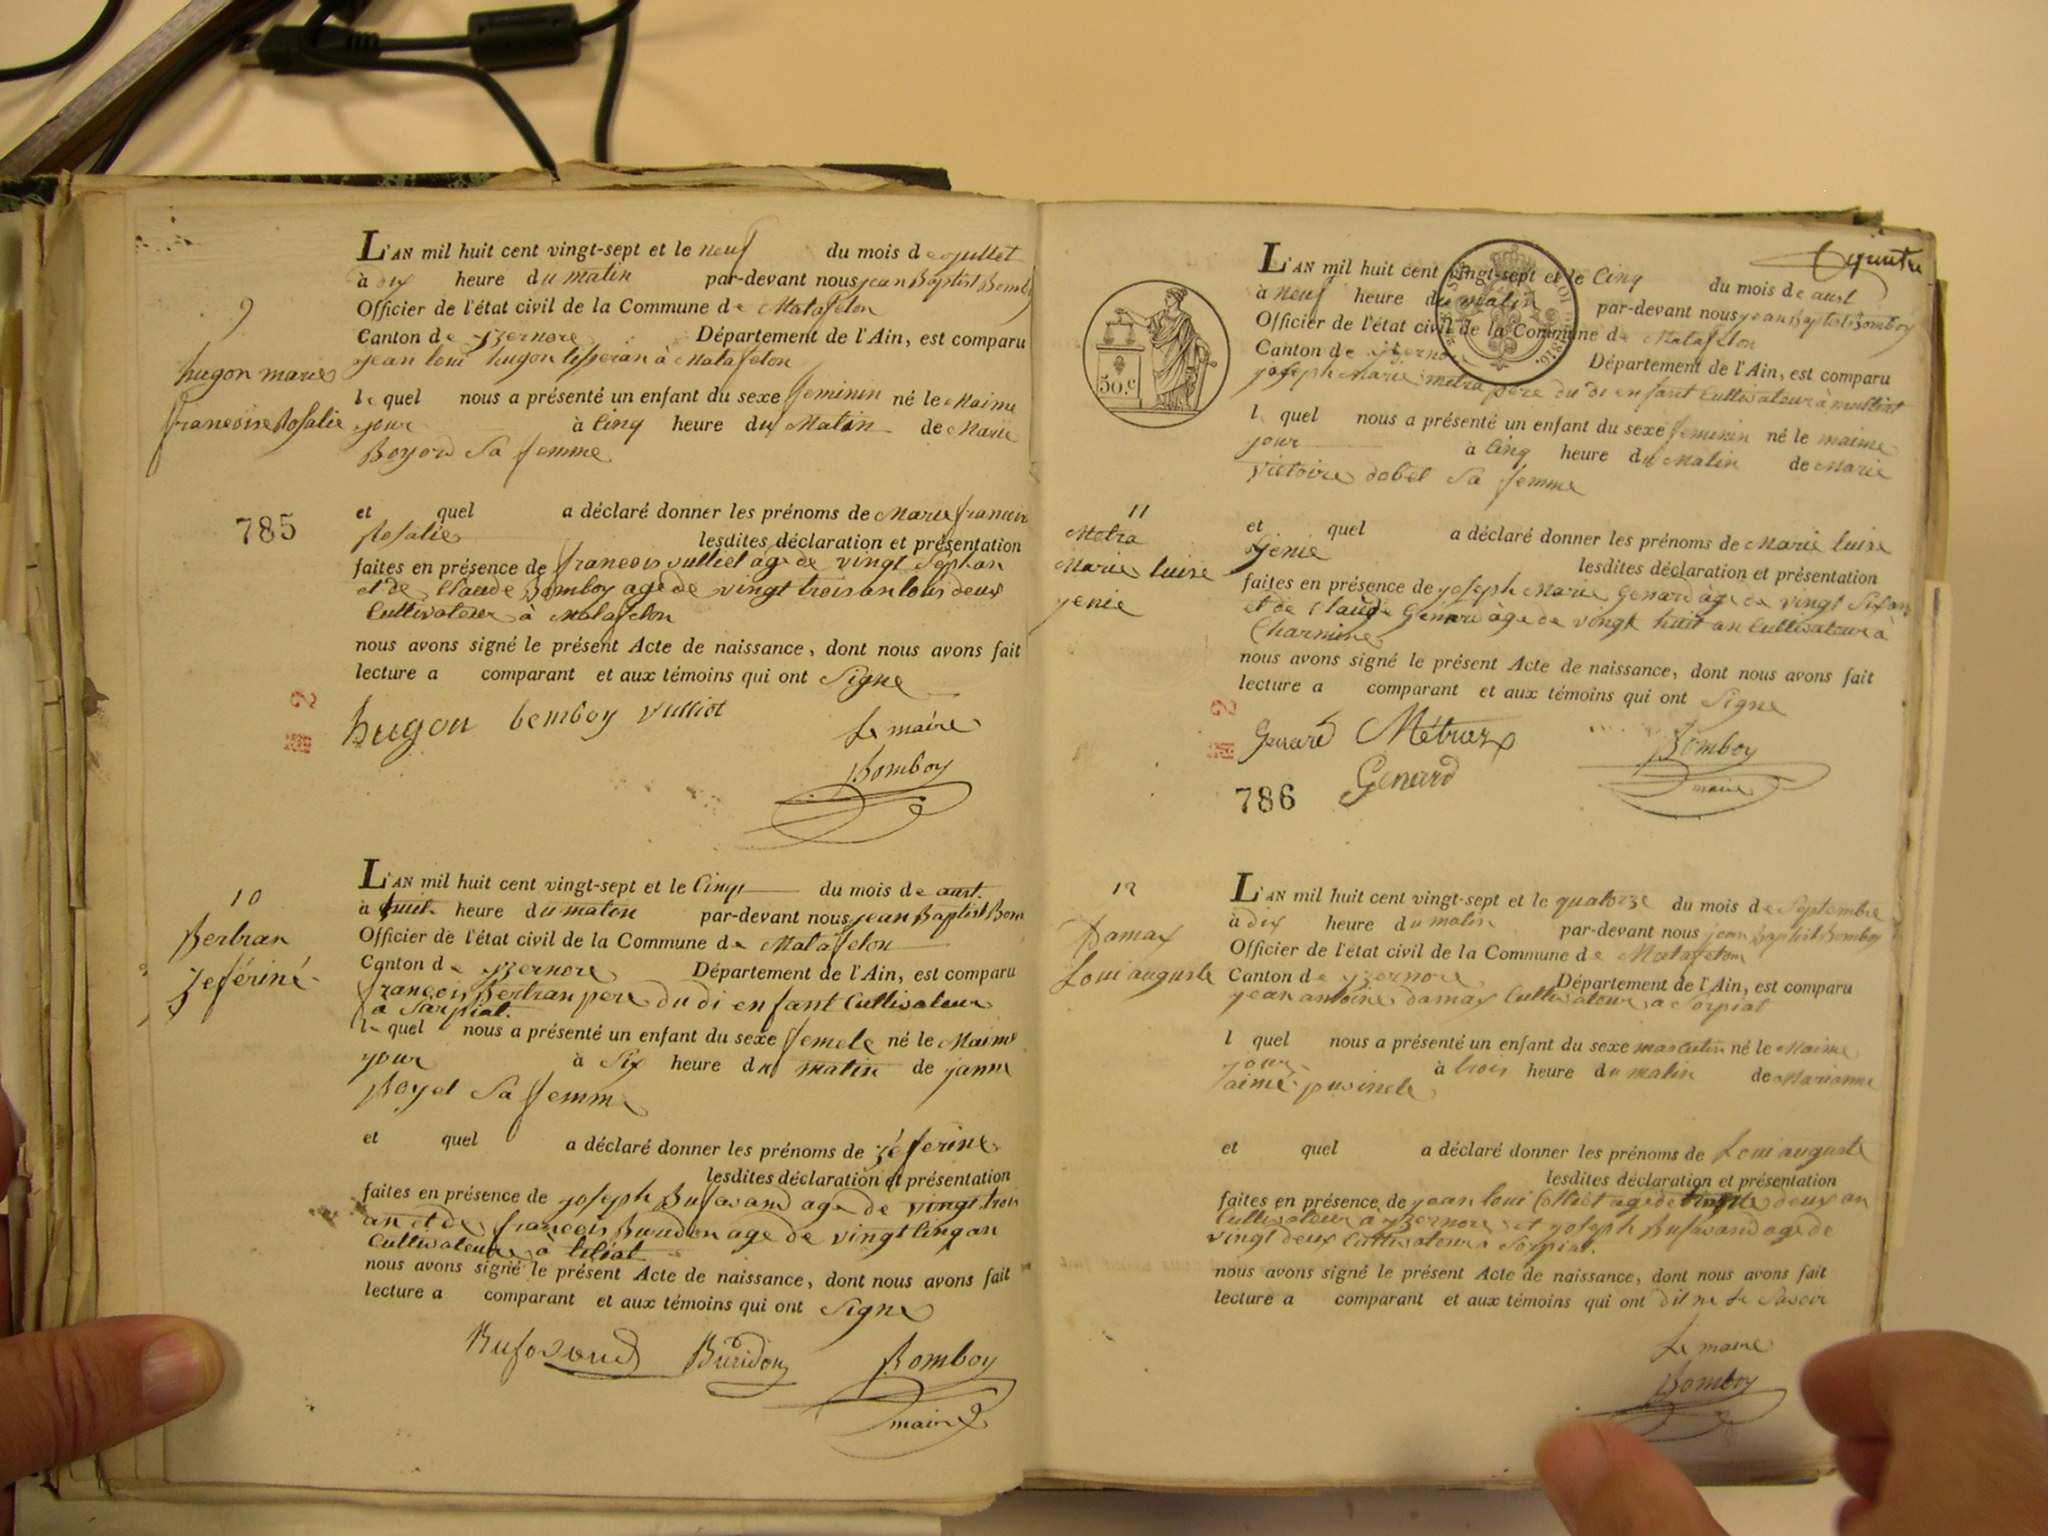 9
hugon marie
francoise Rosalie
785
L'AN mil huit cent vingt-sept et le neuf du mois de juillet
à dix heure du matin par-devant nous jean Baptist Bomb
Officier de l'état civil de la Commune de Matafelon
Canton de yzernore Département de l'Ain, est comparu
jean loui hugon à Matafelon
le quel nous a présenté un enfant du sexe feminin né le Maime
jour à Cinq heure du Matin de Marie
Boyord Sa femme
et quel a déclaré donner les prénoms de Marie francoise
Rosalie lesdites déclaration et présentation
faites en présence de francois vulliet age de vingt Sept an
et de Claude Bomboy age de vingt trois an tous deux
Cultivateur à Matafelon
nous avons signé le présent Acte de naissance, dont nous avons fait
lecture a comparant et aux témoins qui ont Signe
hugon bemboy vulliot Le maire
Bomboy
10
Bertran
zeferine
L'AN mil huit cent vingt-sept et le Cinq du mois de aust
à huit heure du matin par-devant nous jean Baptist Bom
Officier de l'état civil de la Commune de Matafelon
Canton de yzernore Département de l'Ain, est comparu
françois Bertran pere du di enfant Cultivateur
a Sarpiat.
le quel nous a présenté un enfant du sexe femele né le Maime
jour à Six heure du matin de janne
Boyet Sa femme
et quel a déclaré donner les prénoms de zéferine
lesdites déclaration et présentation
faites en présence de joseph Bufavand age de vingt trois
an et de francois Buridon age de vingt Cinq an
Cultivateur à
nous avons signé le présent Acte de naissance, dont nous avons fait
lecture a comparant et aux témoins qui ont Signe
Bufavand Buridon Bomboy
maire
50.c
11
Metra
Marie luise
jenie
L'AN mil huit cent vingt-sept et le Cinq du mois de aust
à Neuf heure du matin par-devant nous jean Baptist Bomboy
Officier de l'état civil de la Commune de Matafelon
Canton de yzerno Département de l'Ain, est comparu
joseph Marie metra pere du di enfant Cultivateur à
l quel nous a présenté un enfant du sexe feminin né le maime
jour à Cinq heure du Matin de Marie
victoire dobel Sa femme
et quel a déclaré donner les prénoms de Marie luise
jenie lesdites déclaration et présentation
faites en présence de joseph Marie Genard age de vingt Six an
et de Claude Genard àge de vingt huit an Cultivateur à
Charmine
nous avons signé le présent Acte de naissance, dont nous avons fait
lecture a comparant et aux témoins qui ont Signe
Genard Métraz Bomboy
Genard maire
786
12
Damax
Loui auguste
L'AN mil huit cent vingt-sept et le quatorze du mois de Septembre
à dix heure du matin par-devant nous jean Baptist Bomboy
Officier de l'état civil de la Commune de Matafelon
Canton de yzernore Département de l'Ain, est comparu
jean antoine damax Cultivateur a Sorpiat
l quel nous a présenté un enfant du sexe masculin né le Maime
jour à trois heure du matin de Marianne
aimé
et quel a déclaré donner les prénoms de Loui auguste
lesdites déclaration et présentation
faites en présence de jean loui Colliet age de deux an
Cultivateur a yzernore et joseph Bufavand age de
vingt deux Cultivateur a Sorpiat.
nous avons signé le présent Acte de naissance, dont nous avons fait
lecture a comparant et aux témoins qui ont dit ne le Savoir
Le maire
Bomboy